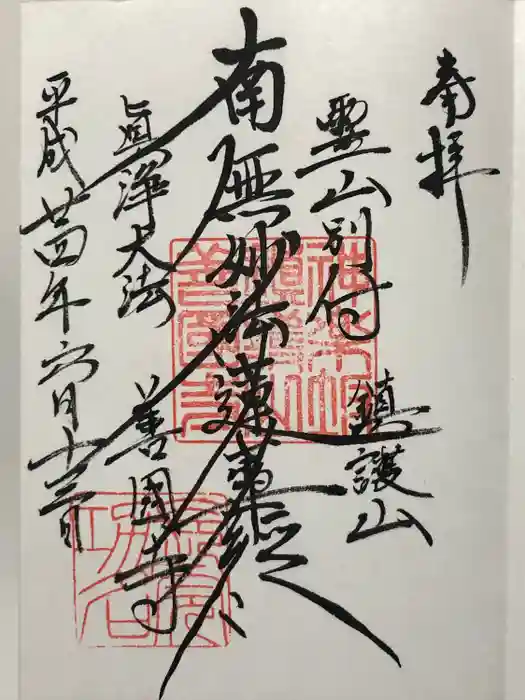 奉拝
鎮護山
霊山別付
南無妙法蓮華経
真浄大法
善國寺
平成廿四年六月十三日